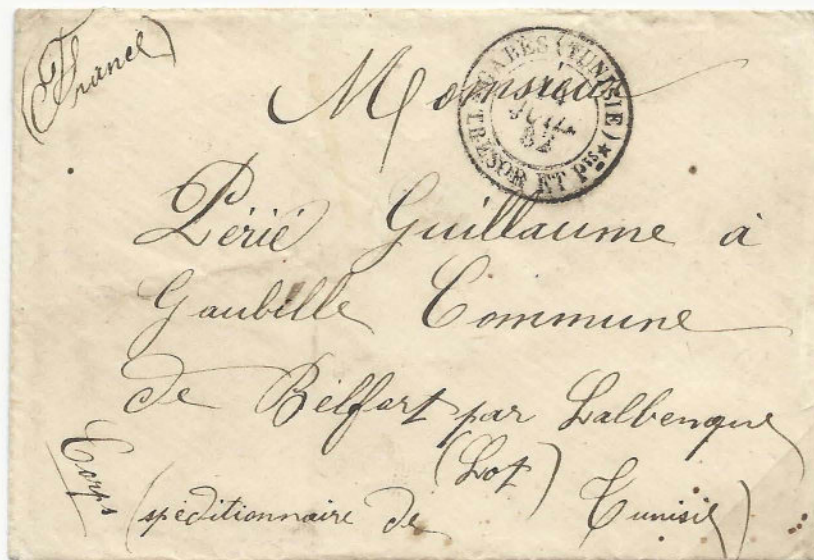 (France)
Monsieur
GABÈS (TUNISIE)
JUIL
82
TRÉSOR ET Ptes
Périé Guillaume à
Gaubille Commune
de Bélfort par Lalbenque
(Lot)
Corps (spéditionnaire de Tunisie)